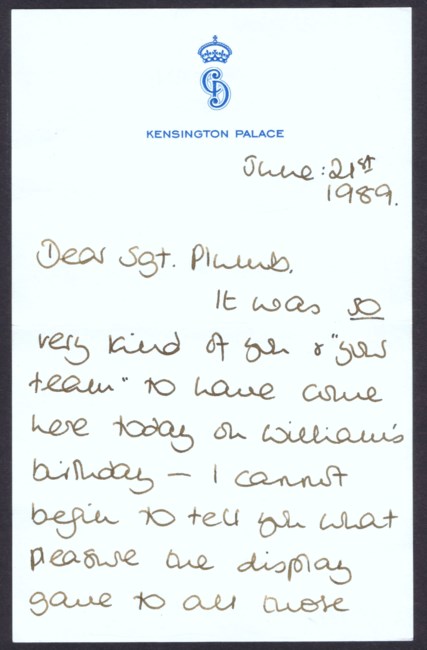 KENSINGTON PALACE
June: 21st
1989.
Dear Sgt. Plumb,
It was so
very kind of you & "your
team" to have come
here today on William's
birthday – I cannot
begin to tell you what
pleasure the display
gave to all those